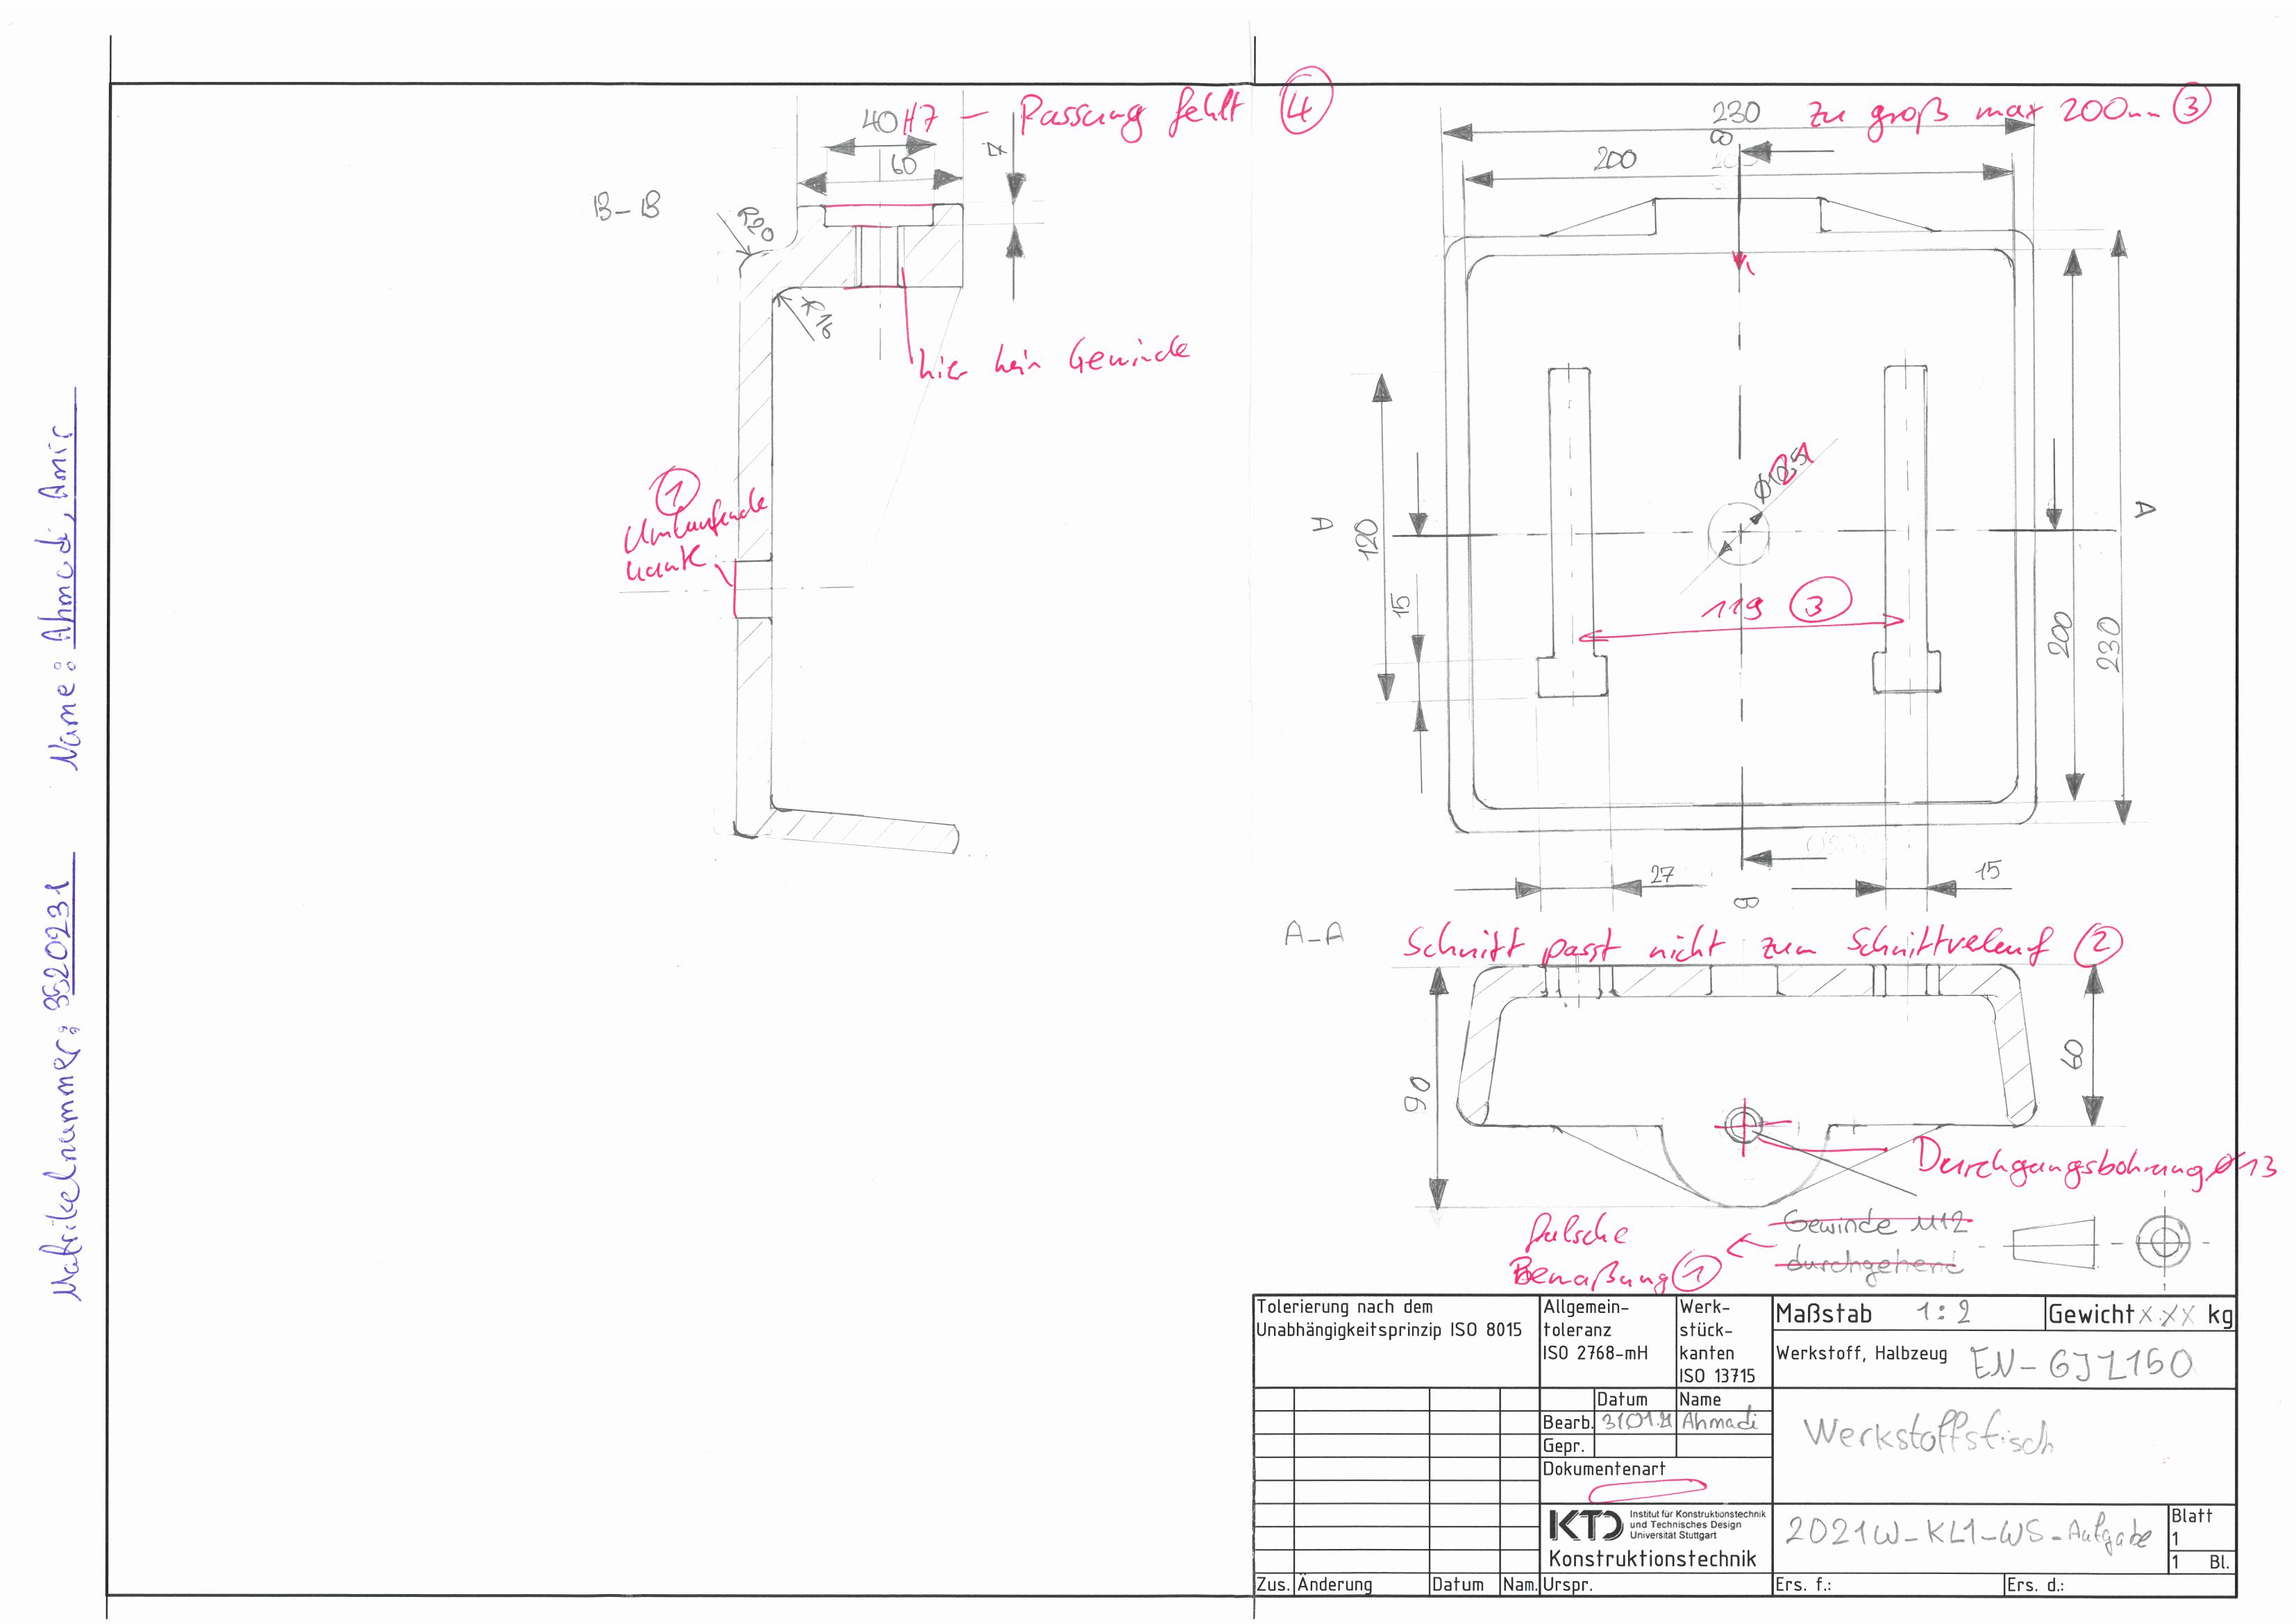 Matrikelnummer: 3520231 Name: Ahmadi, Amir
40H7 - Passung fehlt 4
60
4
B-B
R20
R16
hier kein Gewinde
1
Umlaufende
Kante
230 zu groß max 200mm 3
B
200
A
A
120
15
119 3
200
230
27
15
B
A-A
Schnitt passt nicht zum Schnittverlauf 2
90
60
Durchgangsbohrung ø13
falsche
Bemaßung 1
Gewinde M12
durchgehend
Tolerierung nach dem
Unabhängigkeitsprinzip ISO 8015
Allgemein-
toleranz
ISO 2768-mH
Werk-
stück-
kanten
ISO 13715
Maßstab 1:2
Gewicht x.xx kg
Werkstoff, Halbzeug EN-GJL150
Datum Name
Bearb. Ahmadi
Gepr.
Dokumentenart
Werkstoffstisch
KTD Institut für Konstruktionstechnik
und Technisches Design
Universität Stuttgart
Konstruktionstechnik
2021W-KL1-WS-Aufgabe
Blatt
1
1 Bl.
Zus. Änderung Datum Nam. Urspr. Ers. f.: Ers. d.: